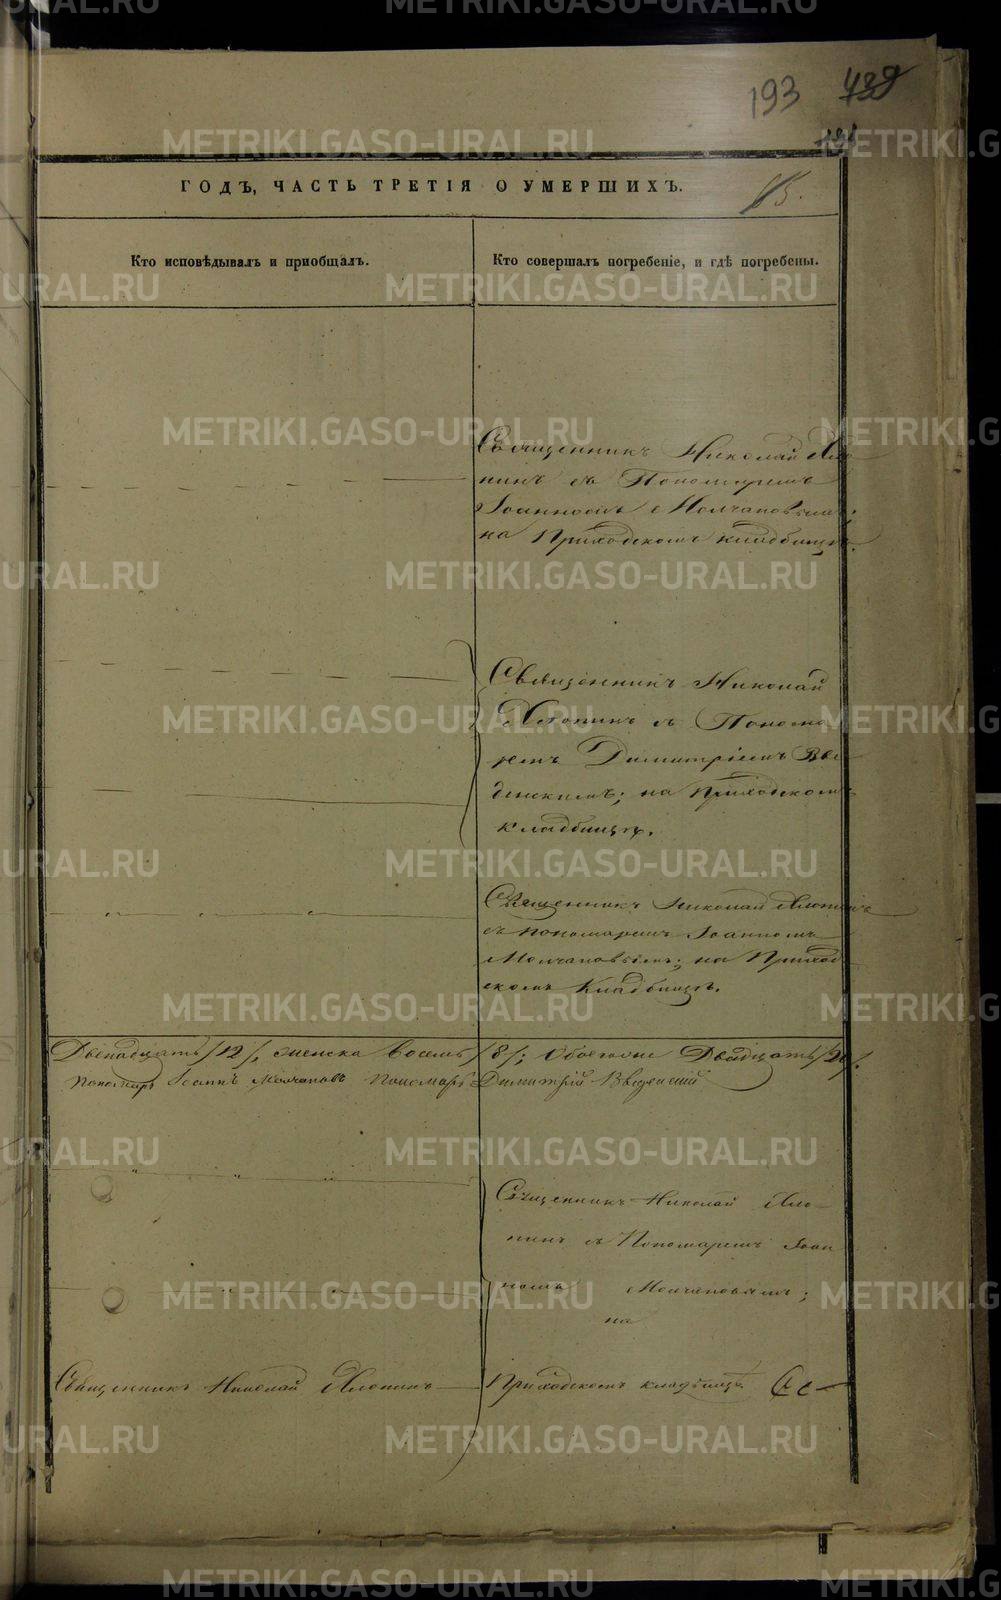 193 439
ГОДЪ, ЧАСТЬ ТРЕТІЯ О УМЕРШИХЪ.
Кто исповѣдывалъ и приобщалъ.
Кто совершалъ погребеніе, и гдѣ погребены.
Священникъ Николай Хло-
пинъ съ Пономаремъ
Іоанномъ Молчановымъ;
на Приходскомъ кладбищѣ.
Священникъ Николай
Хлопинъ съ Понома-
ремъ Димитріемъ Вве-
денскимъ; на Приходскомъ
кладбищѣ.
Священникъ Николай Хлопинъ
съ пономаремъ Іоанномъ
Молчановымъ; на Приход
скомъ Кладбищѣ.
Двѣнадцать /12/, женска восемь /8/; обоего Двадцать /20/.
Пономарь Іоаннъ Молчановъ Пономарь Димитрій Введенскій
Священникъ Николай Хло-
пинъ съ Пономаремъ Іоан
номъ Молчановымъ;
на
Священникъ Николай Хлопинъ
Приходскомъ кладбищѣ.
METRIKI.GASO-URAL.RU